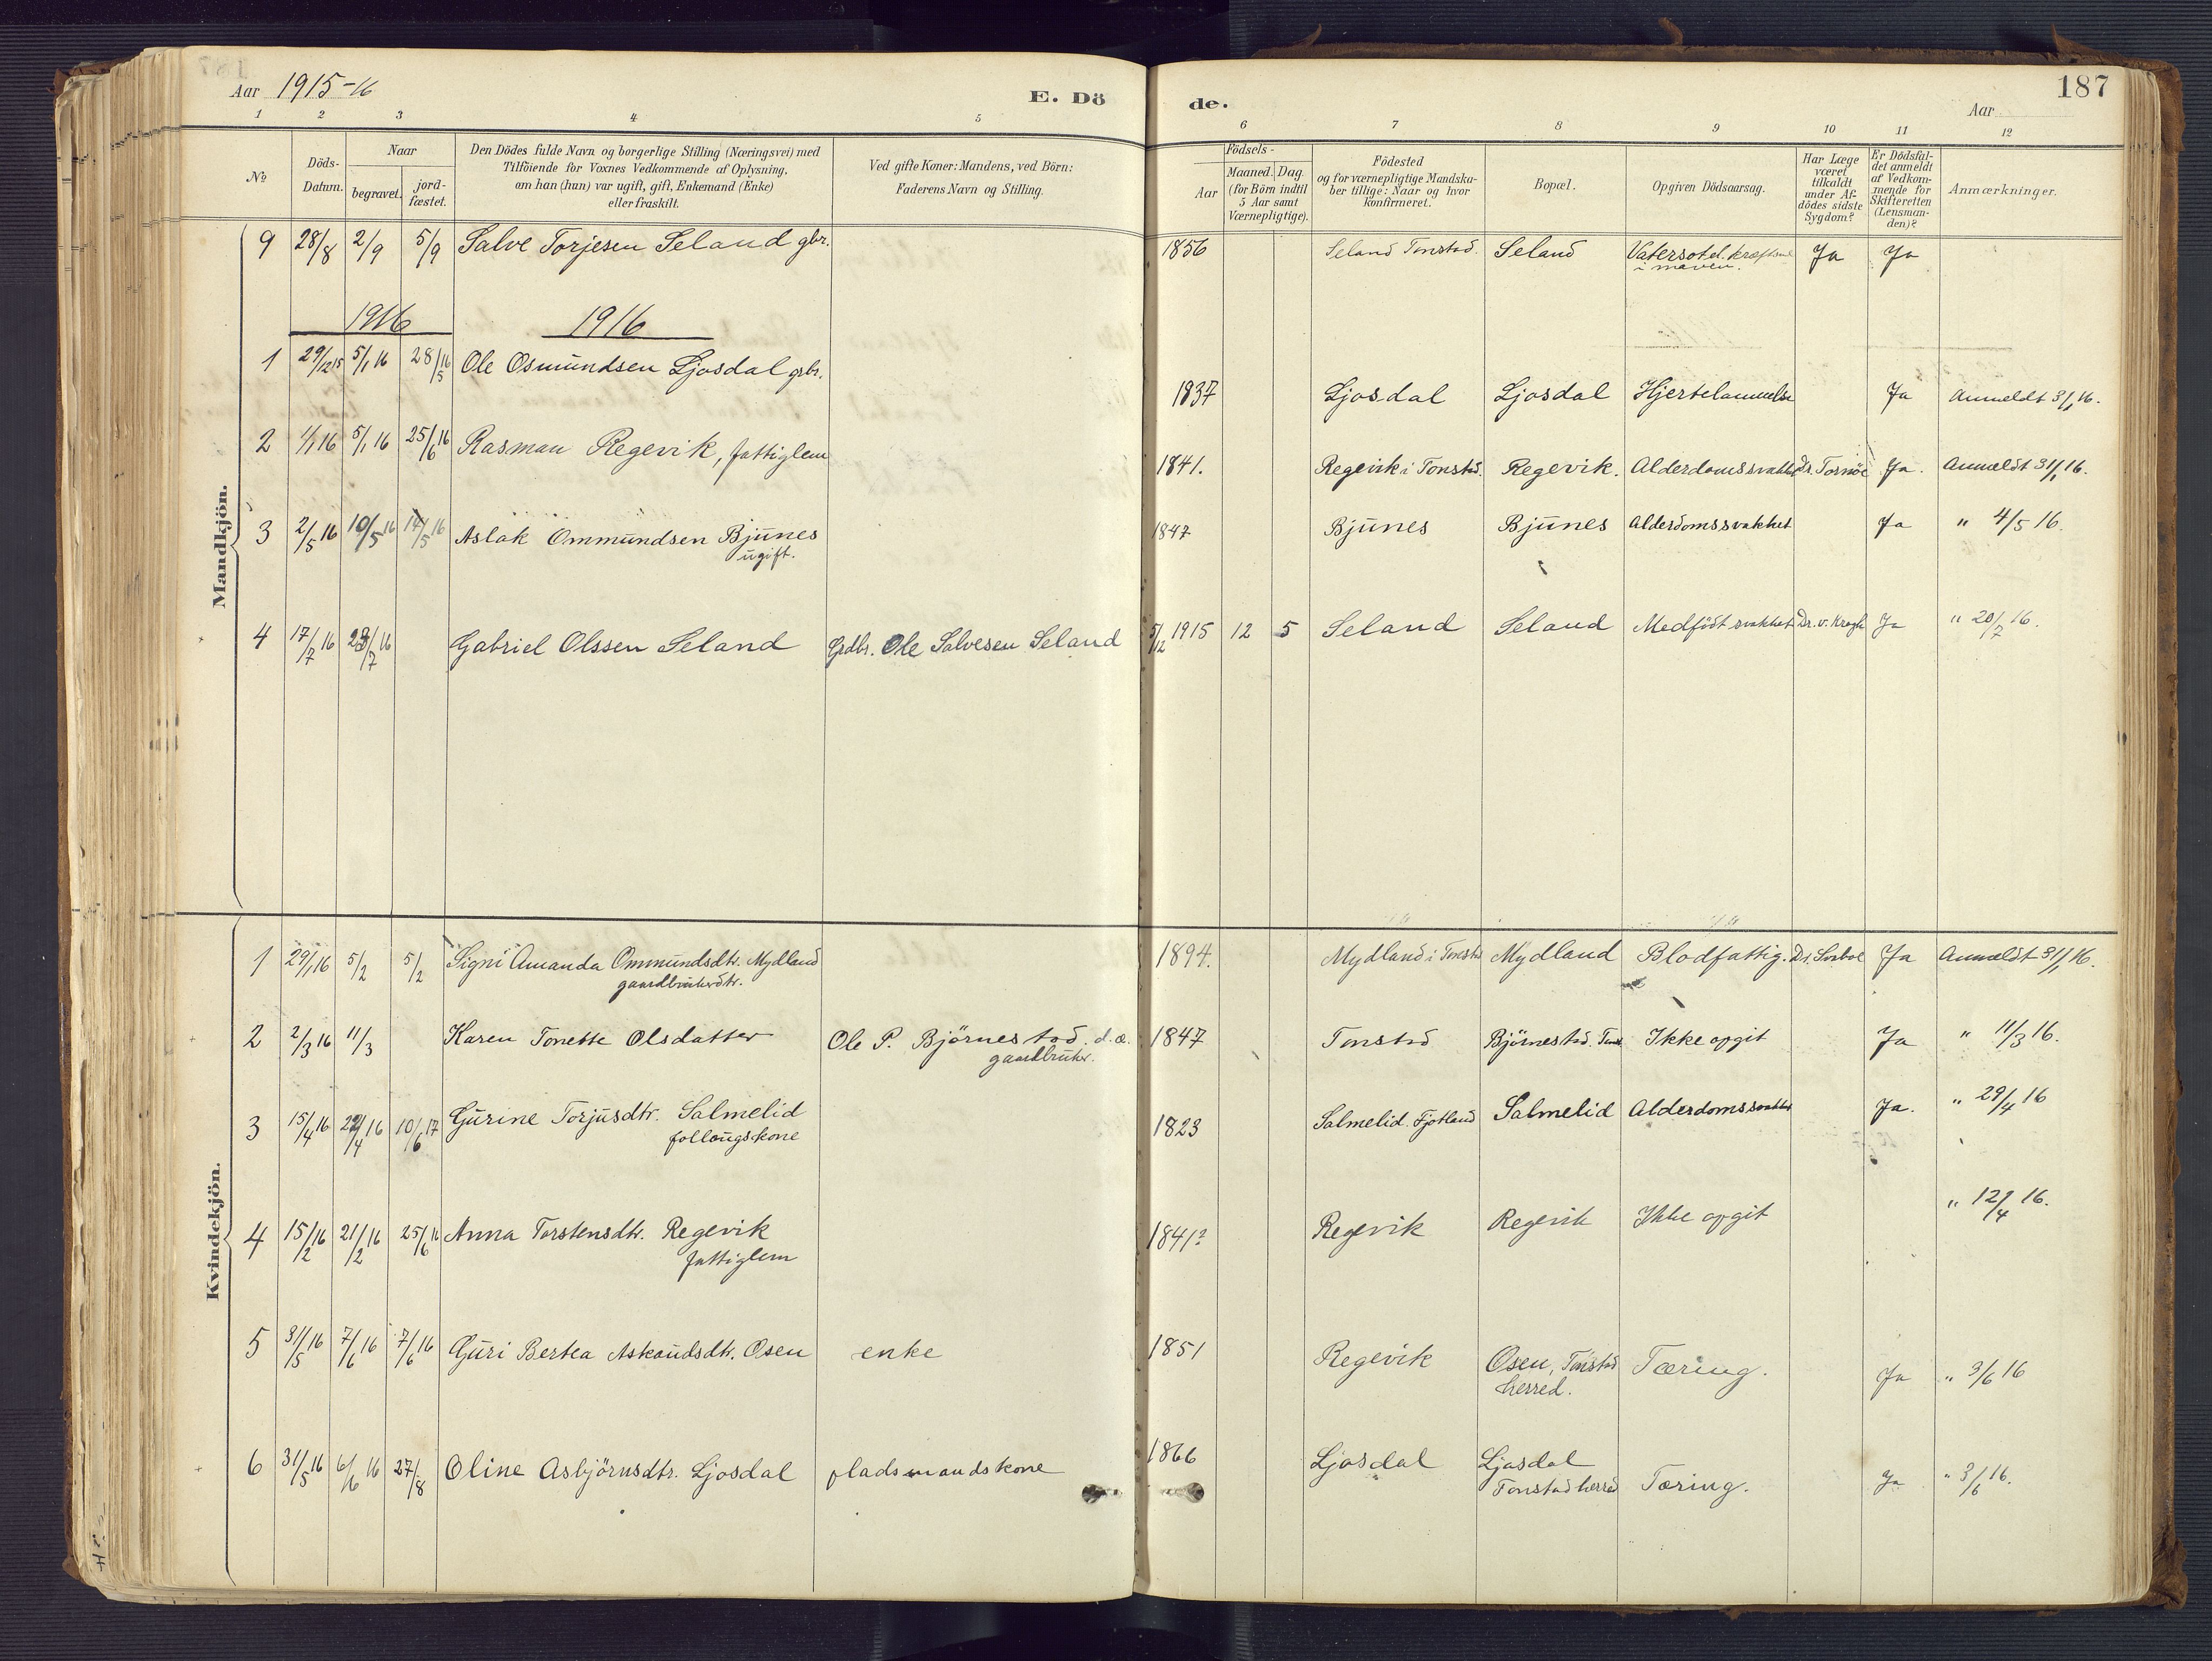 Aar 1915-16
E. Dö
de.
187
Aar
1 2 3 4 5 6 7 8 9 10 11 12
No
Döds-Datum.
Naar
begravet.
jord-fæstet.
Den Dödes fulde Navn og borgerlige Stilling (Næringsvei) med
Tilföiende for Voxnes Vedkommende af Oplysning,
om han (hun) var ugift, gift, Enkemand (Enke)
eller fraskilt.
Ved gifte Koner: Mandens, ved Börn:
Faderens Navn og Stilling.
Födsels-
Aar
Maaned. Dag.
(for Börn indtil
5 Aar samt
Værnepligtige).
Födested
og for værnepligtige Mandska-
ber tillige: Naar og hvor
konfirmeret.
Bopæl.
Opgiven Dödsaarsag.
Har Læge
været
tilkaldt
under Af-
dödes sidste
Sygdom?
Er Dödsfal-
det anmeldt
af Vedkom-
mende for
Skifteretten
(Lensman-
den)?
Anmærkninger.
Mandkjön.
9 28/8 2/9 5/9 Salve Torjesen Seland gbr. 1856 Seland Tonstad. Seland Vatersot el. kræftsvul i maven. Ja Ja
1916 1916
1 29/12 15 5/1 16 28/5 16 Ole Osmundsen Ljosdal grbr. 1837 Ljosdal Ljosdal Hjertelammelse Ja Anmeldt 3/1 16.
2 1/1 16 5/1 16 25/6 16 Rasman Regevik, fattiglem 1841. Regevik i Tonstad. Regevik. Alderdomssvakhet Dr. Tornöe Ja. Anmeldt 31/1 16.
3 2/5 16 10/5 16 14/5 16 Aslak Ommundsen Bjunes
ugift. 1847 Bjunes Bjunes Alderdomssvakhet Ja " 4/5 16.
4 17/7 16 23/7 16 Gabriel Olssen Seland Grdbr. Ole Salvesen Seland 5/12 1915 12 5 Seland Seland Medfödt svakhet Dr. v. Krogh Ja " 20/7 16.
Kvindekjön.
1 29/1 16 5/2 5/2 Signi Amanda Ommundsdtr. Mydland
gaardbrukerdtr. 1894. Mydland i Tonstad Mydland Blodfattig. Dr. Sorboe Ja Anmeldt 31/1 16.
2 2/3 16 11/3 Karen Tonette Olsdatter Ole P. Björnestad. d.æ.
gaardbruker. 1847 Tonstad Björnestad. Tonst Ikke opgit Ja " 11/3 16.
3 15/4 16 22/4 16 10/6 17 Gurine Torjusdtr. Salmelid
follougskone 1823 Salmelid. Fjotland Salmelid Alderdomssvakhet Ja. " 29/4 16
4 15/2 16 21/2 16 25/6 16 Anna Torstensdtr. Regevik
fattiglem 1841? Regevik Regevik Ikke opgit " 12/4 16.
5 31/5 16 7/6 16 7/6 16 Guri Bertea Askoudsdtr. Osen enke 1851 Regevik Osen, Tonstad
herred. Tæring. Ja " 3/6 16
6 31/5 16 6/6 16 27/8 Oline Asbjörnsdtr. Ljosdal pladsmandskone 1866 Ljosdal Ljosdal
Tonstad herred Tæring. Ja " 3/6 16.